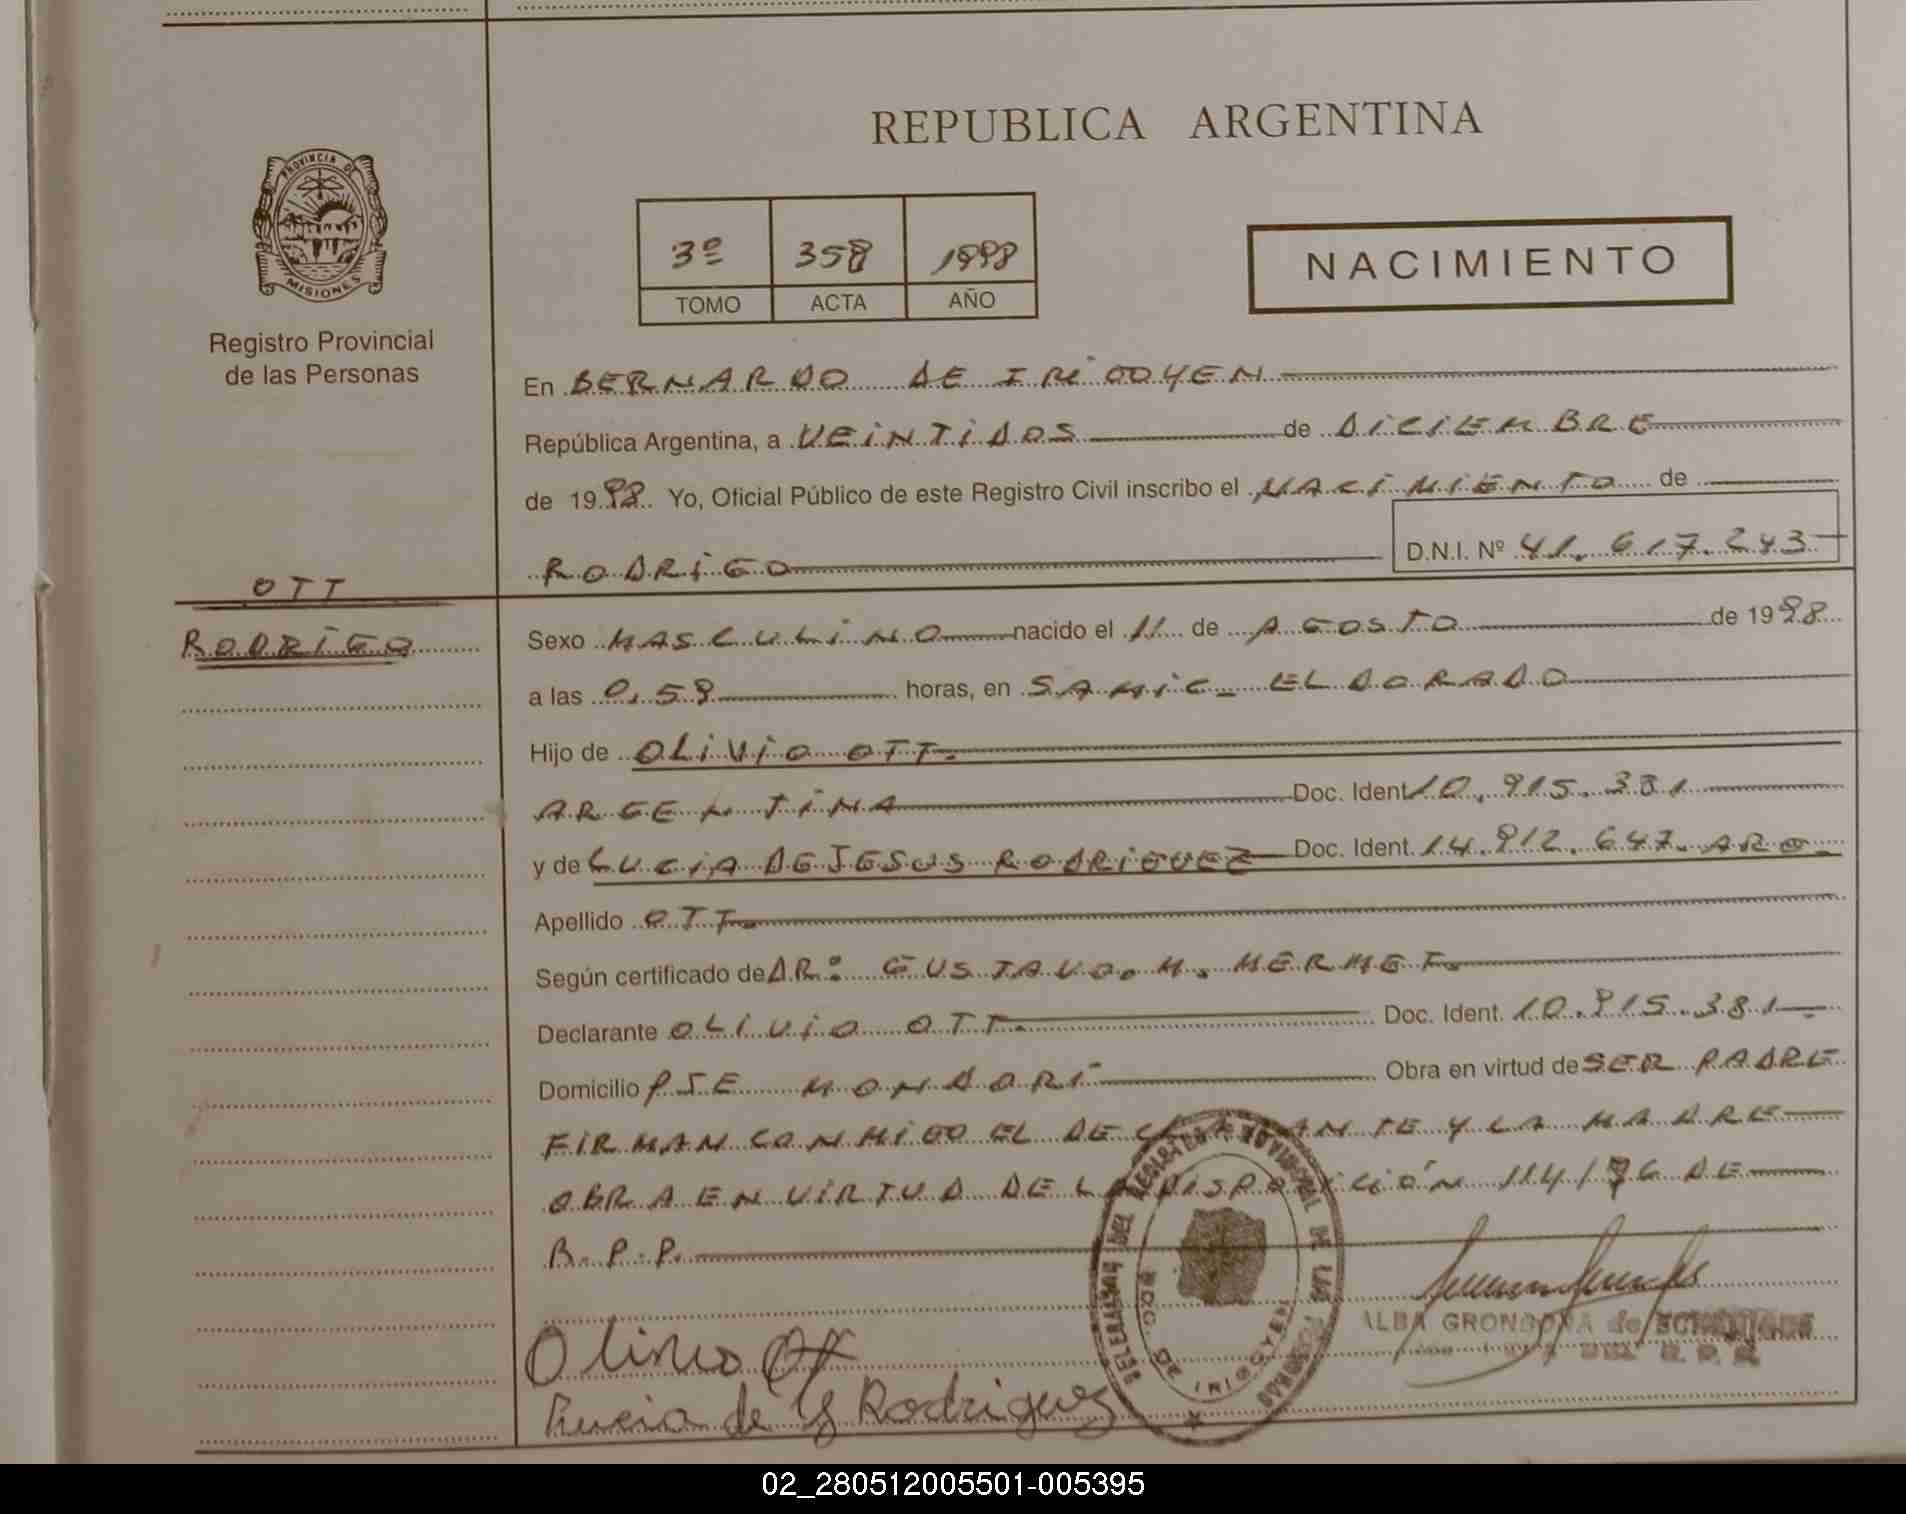 REPUBLICA ARGENTINA
PROVINCIA DE
MISIONES
Registro Provincial
de las Personas
3º 358 1998
TOMO ACTA AÑO
NACIMIENTO
En BERNARDO DE IRIGOYEN
República Argentina, a VEINTIDOS de DICIEMBRE
de 1998 Yo, Oficial Público de este Registro Civil inscribo el NACIMIENTO de
RODRIGO D.N.I. Nº 41.617.243
OTT
RODRIGO
Sexo MASCULINO nacido el 11 de AGOSTO de 1998
a las 0.59 horas, en SAMIC- ELDORADO
Hijo de OLIVIO OTT.
ARGENTINA Doc. Ident. 10.915.381
y de LUCIA DE JESUS RODRIGUEZ Doc. Ident. 14.912.647. ARG.
Apellido OTT.
Según certificado de DR: GUSTAVO. M. MERMET.
Declarante OLIVIO OTT. Doc. Ident. 10.915.381-
Domicilio PJE MONDORI Obra en virtud de SER PADRE
FIRMAN CONMIGO EL DECLARANTE Y LA MADRE
OBRA EN VIRTUD DE LA DISPOSICIÓN 114/76 DE
R.P.P.
DEL REGISTRO PROVINCIAL DE LAS PERSONAS
BDO. DE IRIGOYEN
ALBA GRONDONA de
Olivio Ott
Lucia de J Rodriguez
02_280512005501-005395